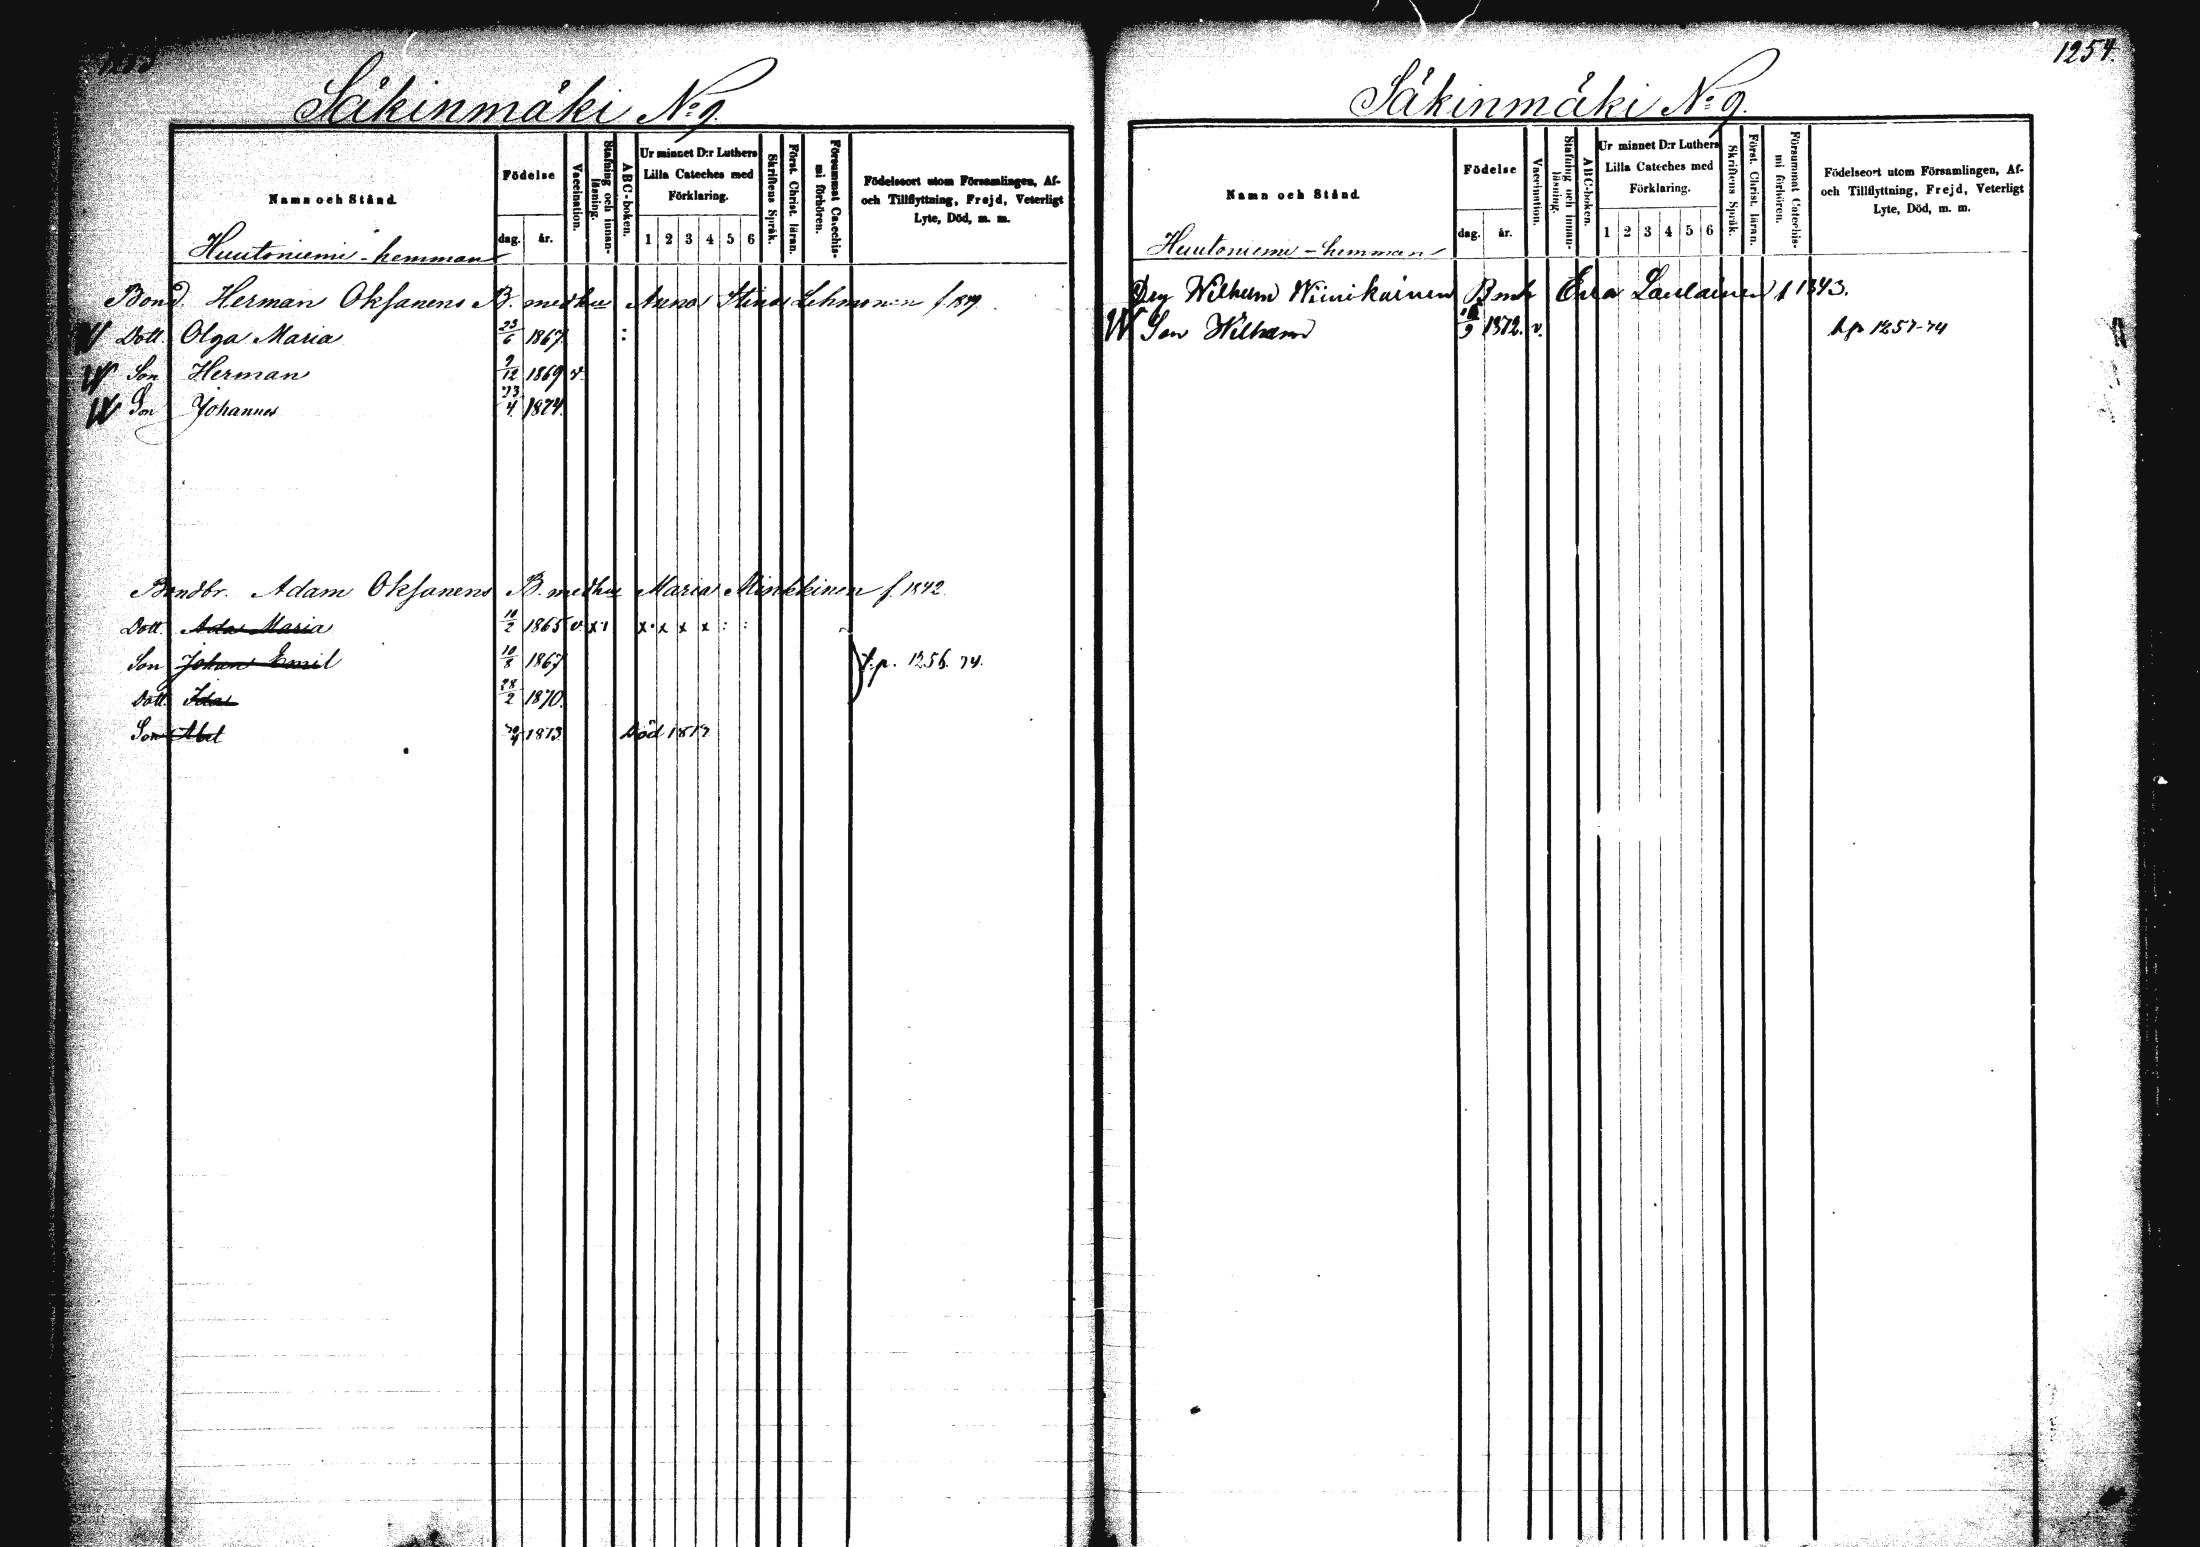 Säkinmäki No 9.
Namn och Stånd.
Födelse
dag.
år.
Vaccination.
Stafning och innan-
läsning.
ABC-boken.
Ur minnet D:r Luthers
Lilla Cateches med
Förklaring.
1 2 3 4 5 6
Skriftens Språk.
Först. Christ. läran.
Försummat Catechis-
mi förhören.
Födelseort utom Församlingen, Af-
och Tillflyttning, Frejd, Veterligt
Lyte, Död, m. m.
Huutoniemi - hemman
Bond. Herman Oksanens B. med hu Anna Stina Lehmonen f.
Dott Olga Maria 23/6 1867 :
Son Herman 9/12 1869 v.
Son Johannes 23/4 1874.
Bondbr. Adam Oksanens B. med hu Maria Minkkinen f. 1842.
Dott. Ada Maria 10/2 1865 v x x x x x : :
Son Johan Emil 10/8 1867 f.p. 1256. 74.
Dott Ida 28/2 1870.
Son Abel 1873 Död
1254.
Säkinmäki No 9.
Namn och Stånd.
Födelse
dag.
år.
Vaccination.
Stafning och innan-
läsning.
ABC-boken.
Ur minnet D:r Luthers
Lilla Cateches med
Förklaring.
1 2 3 4 5 6
Skriftens Språk.
Först. Christ. läran.
Försummat Catechis-
mi förhören.
Födelseort utom Församlingen, Af-
och Tillflyttning, Frejd, Veterligt
Lyte, Död, m. m.
Huutoniemi - hemman
Wilhelm Wiinikainen B mh Eva Laulainen f 1843.
Son Wilhelm 1872. v. f.p 1257-74